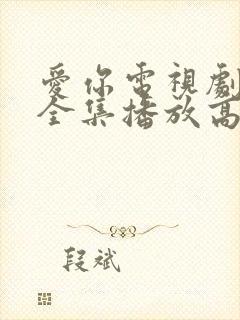 愛你電視劇
全集播放高
段斌